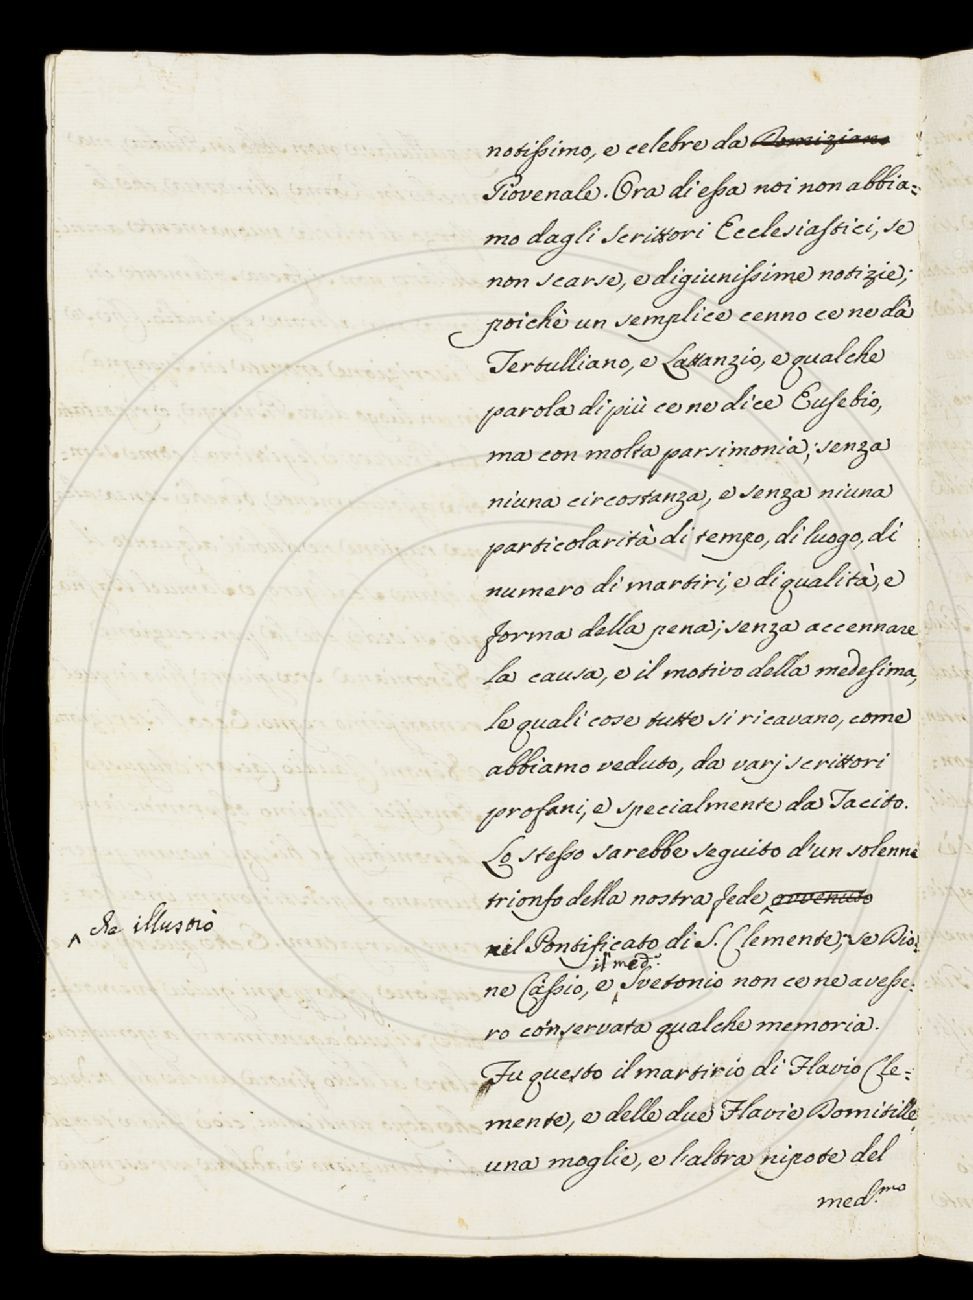 notissimo, e celebre da Domiziano
Giovenale. Ora di essa noi non abbia=
mo dagli Scrittori Ecclesiastici, se
non scarse, e digiunissime notizie;
poichè un semplice cenno ce ne dà
Tertulliano, e Lattanzio, e qualche
parola di più ce ne dice Eusebio,
ma con molta parsimonia; senza
niuna circostanza, e senza niuna
particolarità di tempo, di luogo, di
numero di martiri, e di qualità, e
forma della pena; senza accennare
la causa, e il motivo della medesima,
le quali cose tutte si ricavano, come
abbiamo veduto, da varj scrittori
profani, e specialmente da Tacito.
Lo stesso sarebbe seguito d'un solenne
trionfo della nostra fede avvenuto
che illustrò
il Pontificato di S. Clemente; se Dio=
il med.º
ne Cassio, e Svetonio non ce ne avesse=
ro conservata qualche memoria.
Fu questo il martirio di Flavio Cle=
mente, e delle due Flavie Domitille
una moglie, e l'altra nipote del
med.mo